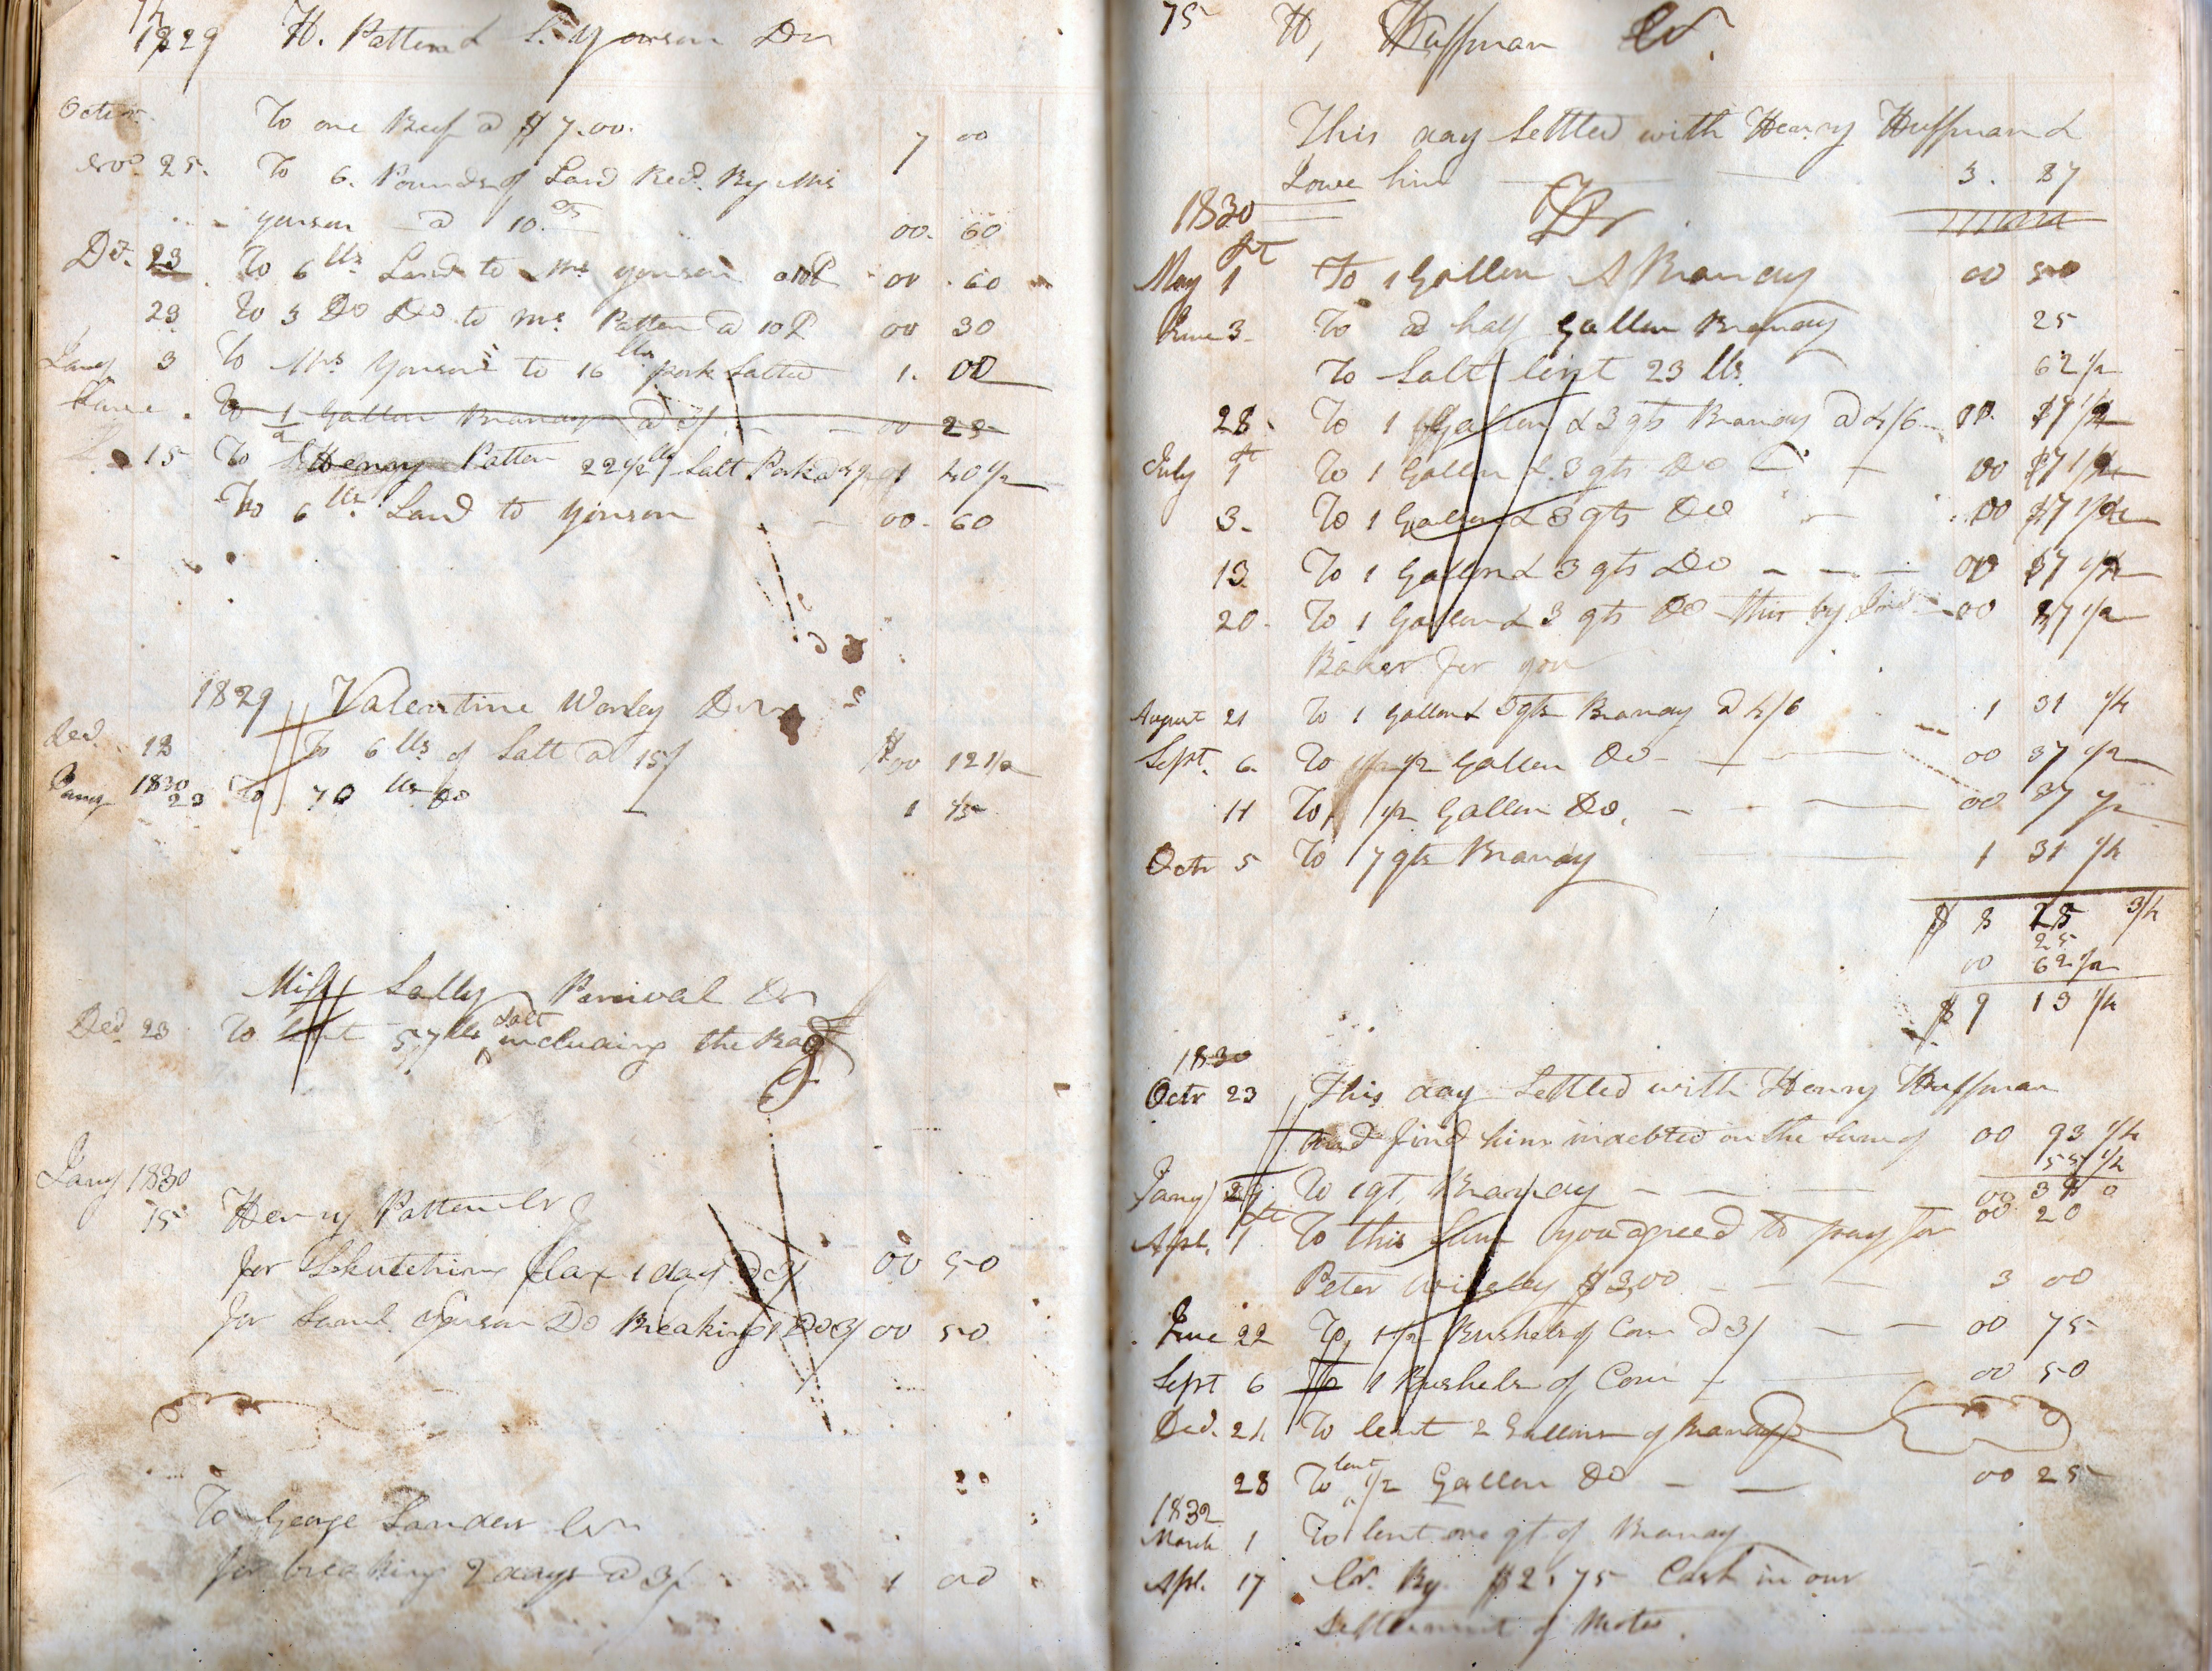 74
1829 H. Patten & S. Yonson Dr
Octr. To one Beef @ $7.00. 7 00
Nov. 25. To 6. Pounds of Lard Recd. By Mrs
yonson @ 10 00. 60
De. 23 To 6 lbs Lard to Mrs yonson 00. 60
23 To 3 Do Do to Mrs Patten @ 10 00 30
Jany 3 To Mrs Yonson to 16 lbs pork Salted 1. 00
To 1/2 Gallon Brandy @ 3/ 00 25
15 To Henry Patten 22 1/2 lbs Salt Pork 01 40 1/2
To 6 lbs Lard to yonson 00. 60
1829 Valentine Worley Dr
Decr. 18 To 6 lbs of Salt @ 15/ $00 12 1/2
1830
Jany 23 To 70 lbs Do 1
Miss Sally Percival Dr
Decr. 23 To lent 57 lbs salt including the Bag
Jany 1830
15 Henry Patten Cr
for Skutching flax 1 day @ 3/ 00 50
for Saml. Yonson Do Breaking 1 Do 3/ 00 50
To George Sanders Cr
for breaking 2 days @ 3/ 1 00
75 H, Huffman Cr.
This day Settled with Henry Huffman &
I owe him 3. 87
1830 Dr
May 1st To 1 Gallon A Brandy 00 50
June 3 To a half Gallon Brandy 25
To Salt lent 23 lbs. 62 1/2
28 To 1 Gallon & 3 qts Brandy @ 4/6 00 87 1/2
July 1st To 1 Gallon & 3 qts Do 00 87 1/2
3 To 1 Gallon & 3 qts Do 00 87 1/2
13 To 1 Gallon & 3 qts Do 00 87 1/2
20 To 1 Gallon & 3 qts Do this by 00 87 1/2
Baker for you
August 21 To 1 Gallon & 3 qts Brandy @ 4/6 1 31 1/4
Sept. 6 To 1/2 Gallon Do 00 37 1/2
11 To 1/2 Gallon Do. 00 37 1/2
Octr 5 To 7 qts Brandy 1 31 1/4
$ 8 25 3/4
25
00 62 1/2
$ 9 13 1/4
1830
Octr 23 This day Settled with Henry Huffman
and find him indebted in the Sum of 00 93 1/4
55 1/4
Jany 29 To 1 qt, Brandy 00 38 0
00 20
Apl. 1st To this Sum you agreed to pay for
Peter $3,00 3 00
June 22 To 1 1/2 Bushels of Corn @ 3/ 00 75
Sept 6 To 1 Bushels of Corn 00 50
Decr. 24 To lent 2 Gallons of Brandy
28 To lent 1/2 Gallon Do 00 25
1832
March 1 To lent one qt of Brandy
Apl. 17 Cr. By $2.75 Cash in our
Settlement of Notes.